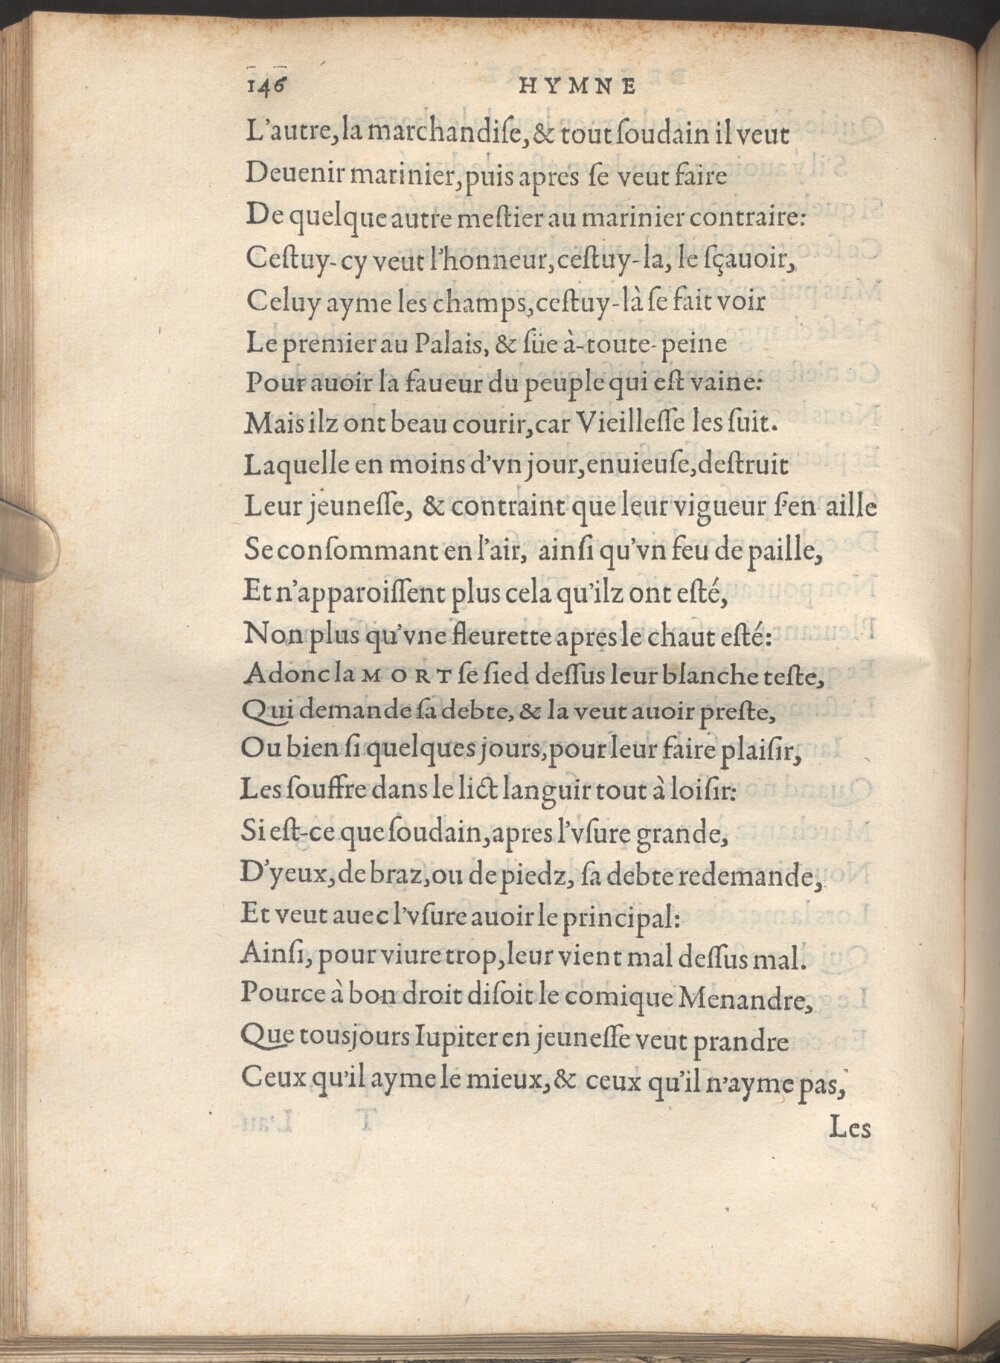 146 HYMNE
L'autre, la marchandiſe, & tout ſoudain il veut
Deuenir marinier, puis apres ſe veut faire
De quelque autre meſtier au marinier contraire:
Ceſtuy-cy veut l'honneur, ceſtuy-la, le ſçauoir,
Celuy ayme les champs, ceſtuy-là ſe fait voir
Le premier au Palais, & ſüe à-toute-peine
Pour auoir la faueur du peuple qui eſt vaine:
Mais ilz ont beau courir, car Vieilleſſe les ſuit.
Laquelle en moins d'vn jour, enuieuſe, deſtruit
Leur jeuneſſe, & contraint que leur vigueur ſ'en aille
Se conſommant en l'air, ainſi qu'vn feu de paille,
Et n'apparoiſſent plus cela qu'ilz ont eſté,
Non plus qu'vne fleurette apres le chaut eſté:
Adonc la MORT ſe ſied deſſus leur blanche teſte,
Qui demande ſa debte, & la veut auoir preſte,
Ou bien ſi quelques jours, pour leur faire plaiſir,
Les ſouffre dans le lict languir tout à loiſir:
Si eſt-ce que ſoudain, apres l'vſure grande,
D'yeux, de braz, ou de piedz, ſa debte redemande,
Et veut auec l'vſure auoir le principal:
Ainſi, pour viure trop, leur vient mal deſſus mal.
Pource à bon droit diſoit le comique Menandre,
Que tousjours Iupiter en jeuneſſe veut prandre
Ceux qu'il ayme le mieux, & ceux qu'il n'ayme pas,
Les